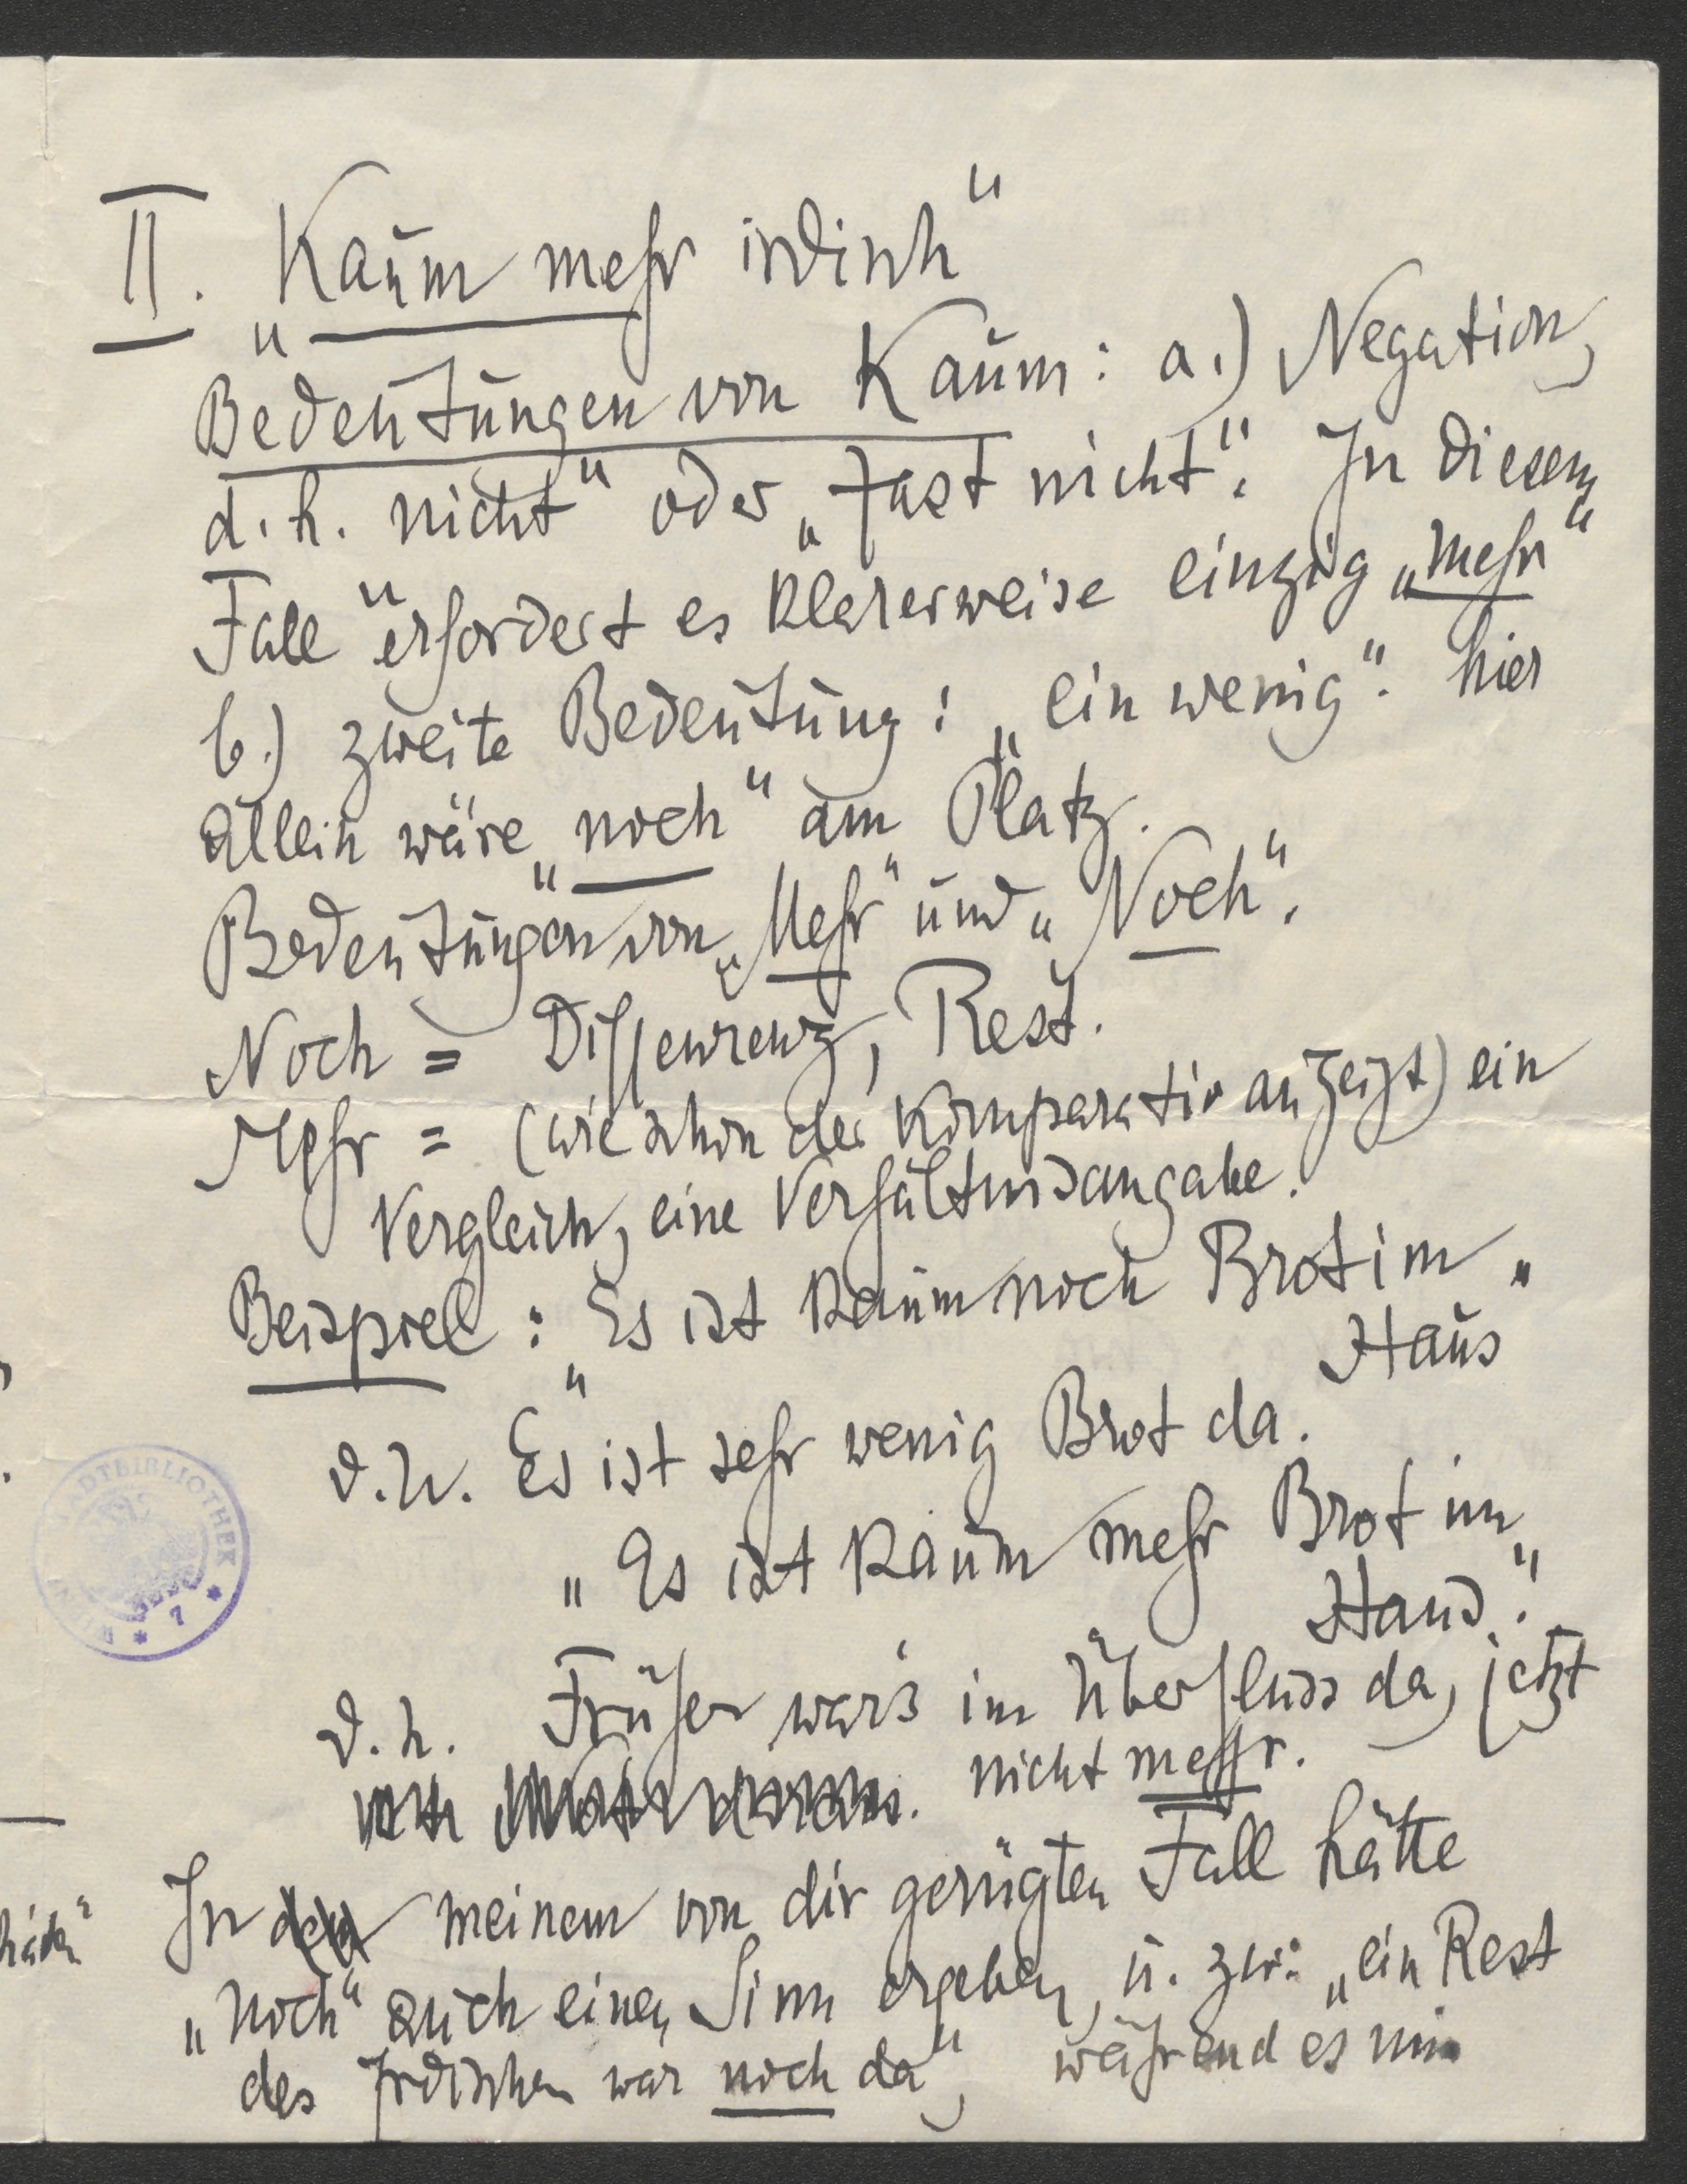 II. „Kaum mehr irdisch“
Bedeutungen von Kaum: a.) Negation,
d. h. nicht“ oder „fast nicht“. In diesem
Fall erfordert es klarerweise einzig „mehr“
b.) zweite Bedeutung: „ein wenig“. hier
allein wäre „noch“ am Platz.
Bedeutungen von „Mehr“ und „Noch“.
Noch = Differenz, Rest.
Mehr = (wie schon der Komparativ anzeigt) ein
Vergleich, eine Verhältnisangabe.
Beispiel: „Es ist kaum noch Brot im
Haus“
d. h. Es ist sehr wenig Brot da.
„Es ist kaum mehr Brot im
Haus“.
d. h. Früher war's im Überfluss da, jetzt
nicht mehr.
In meinem von dir gerügten Fall hätte
„noch“ auch einen Sinn ergeben, u. zw: „ein Rest
des Irdischen war noch da“, während es mir
STADTBIBLIOTHEK
* 7 *